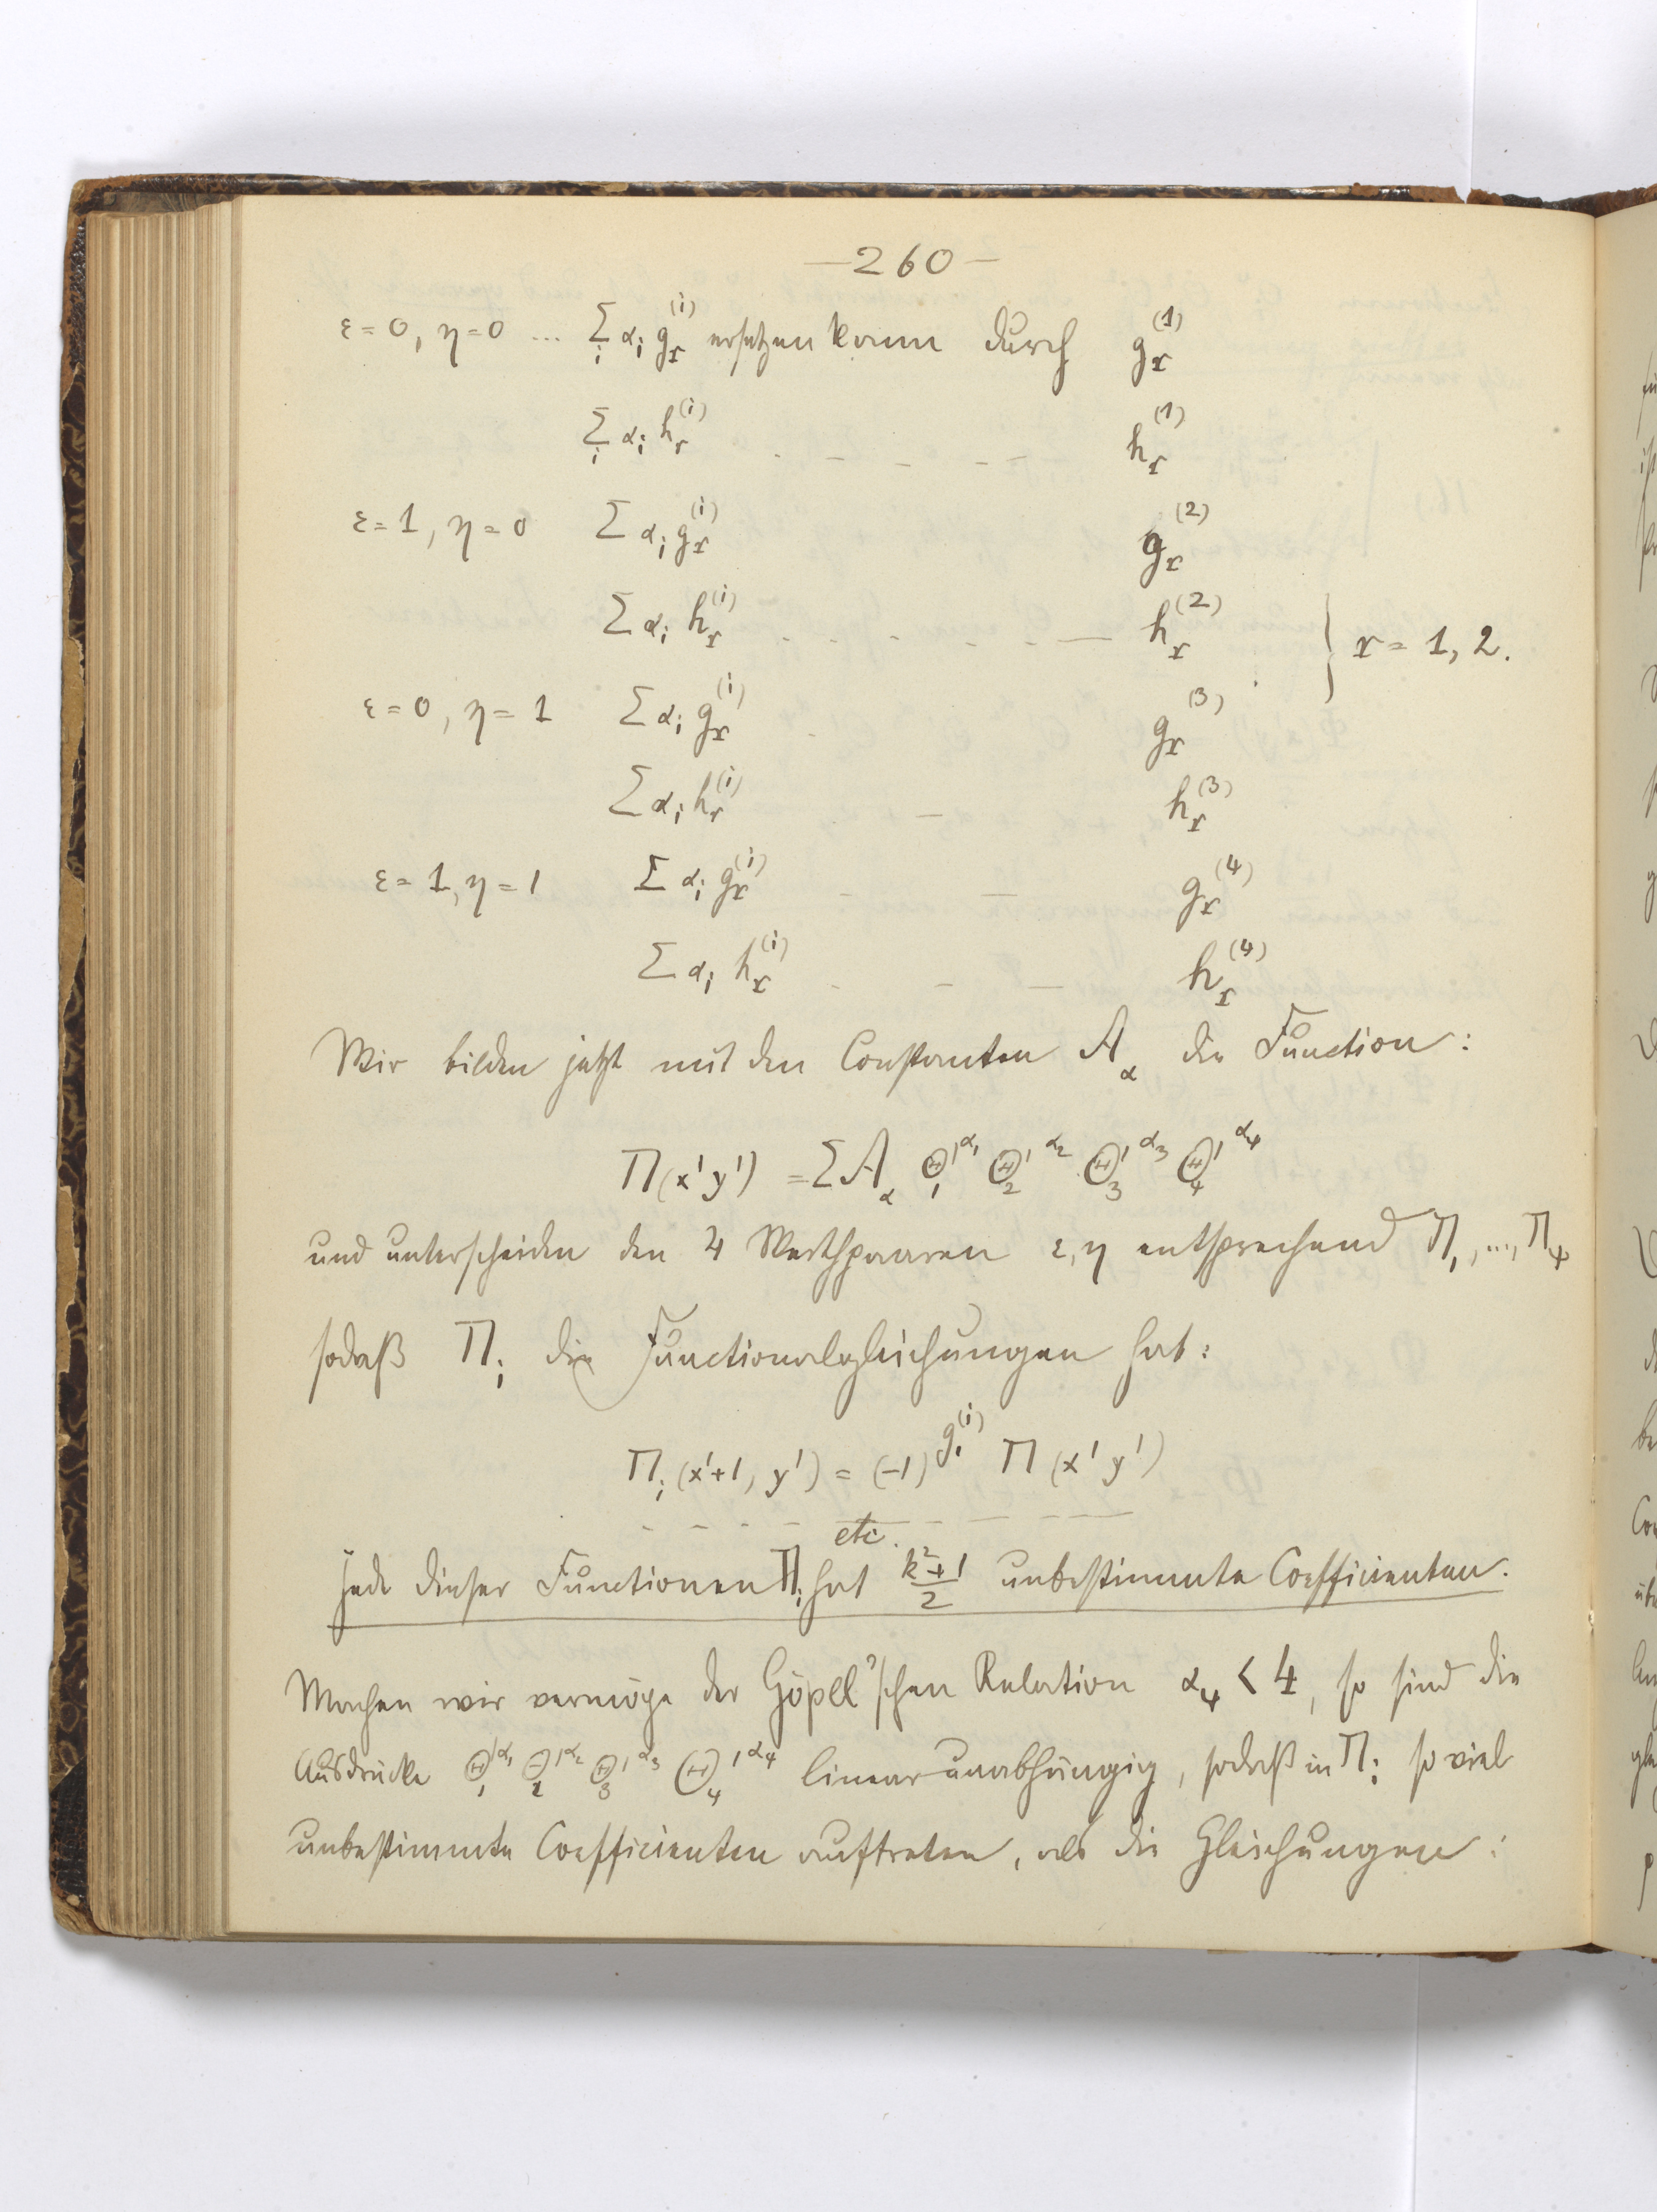 — 260 —
ε = 0, η = 0 ... Σ_i α_i g_r^(i) ersetzen kann durch g_r^(1)
Σ_i α_i h_r^(i) . – – – – h_r^(1)
ε = 1, η = 0 Σ α_i g_r^(i) g_r^(2)
Σ α_i h_r^(i) . . . . . . — h_r^(2) } r = 1, 2.
ε = 0, η = 1 Σ α_i g_r^(i) g_r^(3)
Σ α_i h_r^(i) – h_r^(3)
ε = 1, η = 1 Σ α_i g_r^(i) – – g_r^(4)
Σ α_i h_r^(i) . – — h_r^(4)
Wir bilden jetzt mit den Constanten A_α die Function:
Π(x' y') = Σ A_α Θ_1'^α_1 Θ_2'^α_2 Θ_3'^α_3 Θ_4'^α_4
und unterscheiden den 4 Werthpaaren ε, η entsprechend Π_1, ..., Π_4
sodaß Π_i die Functionalgleichungen hat:
Π_i (x'+1, y') = (-1)^{g_1^(i)} Π (x' y')
– – – – etc. – – —
Jede dieser Functionen Π_i hat (k²+1)/2 unbestimmte Coefficienten.
Machen wir vermöge der Göpel'schen Relation α_4 < 4, so sind die
Ausdrücke Θ_1'^α_1 Θ_2'^α_2 Θ_3'^α_3 Θ_4'^α_4 linear unabhängig, sodaß in Π_i so viel
unbestimmte Coefficienten auftreten, als die Gleichungen: